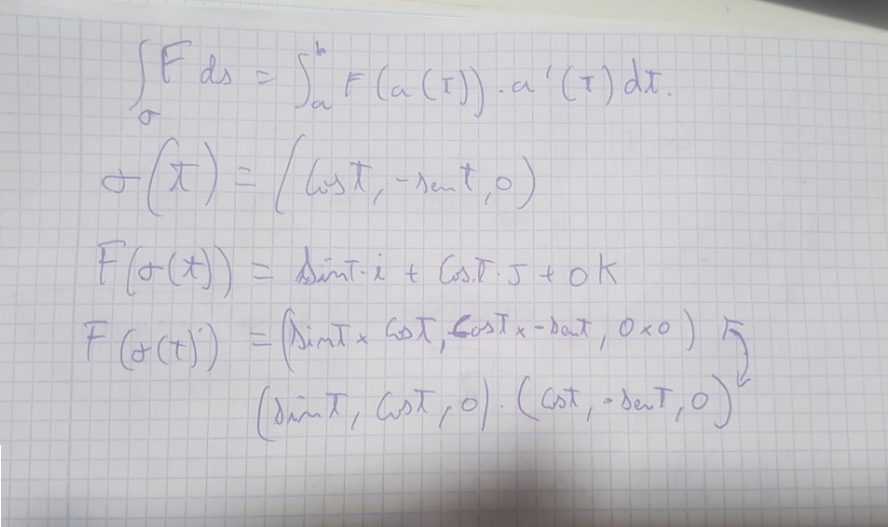 ∫_σ F ds = ∫_a^b F(a(t)) · a'(t) dt.
σ(t) = (Cost, -sent, 0)
F(σ(t)) = sint·i + Cos.t·J + 0K
F(σ(t)') = (sint x Cost, Cost x -sent, 0x0)
(sint, Cost, 0) · (Cost, -sent, 0)